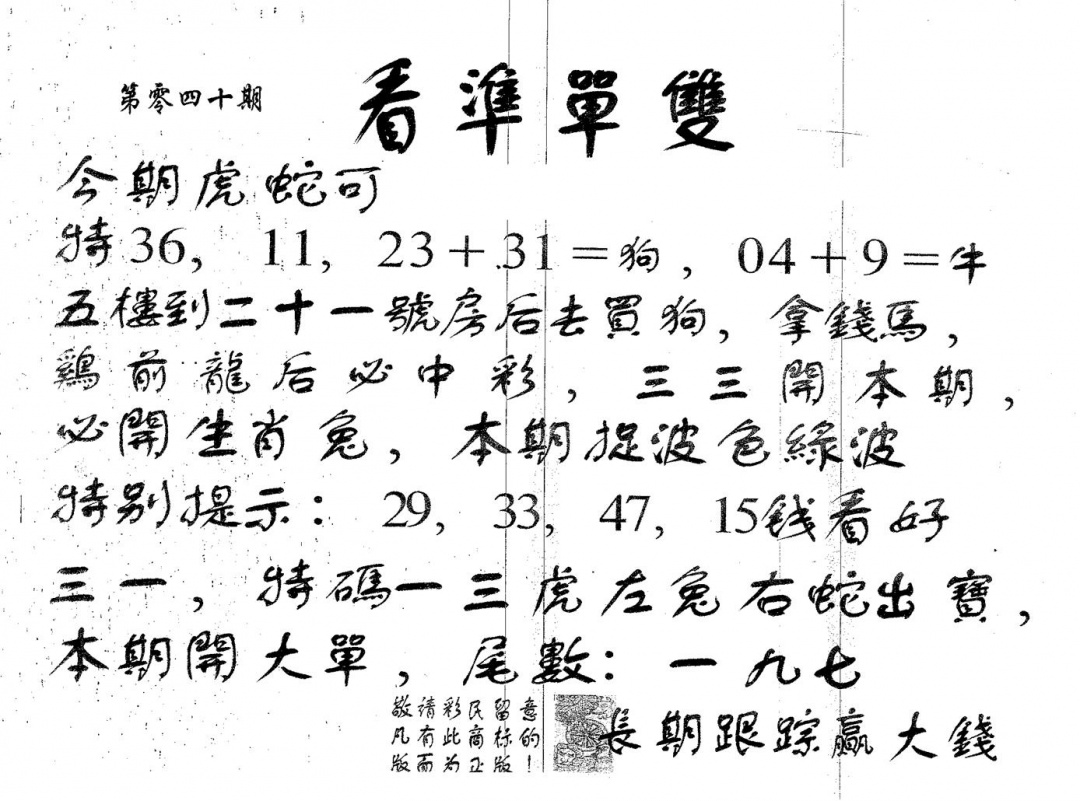 第零四十期
看準單雙
今期虎蛇可
特36, 11, 23+31=狗, 04+9=牛
五樓到二十一號房后去買狗, 拿錢馬,
鷄前龍后必中彩, 三三開本期,
必開生肖兔, 本期捉波色綠波
特别提示: 29, 33, 47, 15钱看好
三一, 特碼一三虎左兔右蛇出寶,
本期開大單, 尾數: 一九七
敬请彩民留意
凡有此商标的!
版面为正版
長期跟踪赢大錢